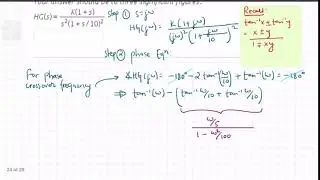 Your answer should be to three significant figures.
HG(s) = K(1+s) / s²(1+s/10)²
step ① s=jω
HG(jω) = K(1+jω) / (jω)²(1+jω/10)²
Recall:
tan⁻¹x ± tan⁻¹y
= x ± y / 1 ∓ xy
step ② phase Eqⁿ:
For phase crossover frequency
∡HG(jω) = -180° - 2 tan⁻¹(ω/10) + tan⁻¹(ω) = -180°
⇒ tan⁻¹(ω) - (tan⁻¹ ω/10 + tan⁻¹ ω/10)
ω/5 / 1 - ω²/100